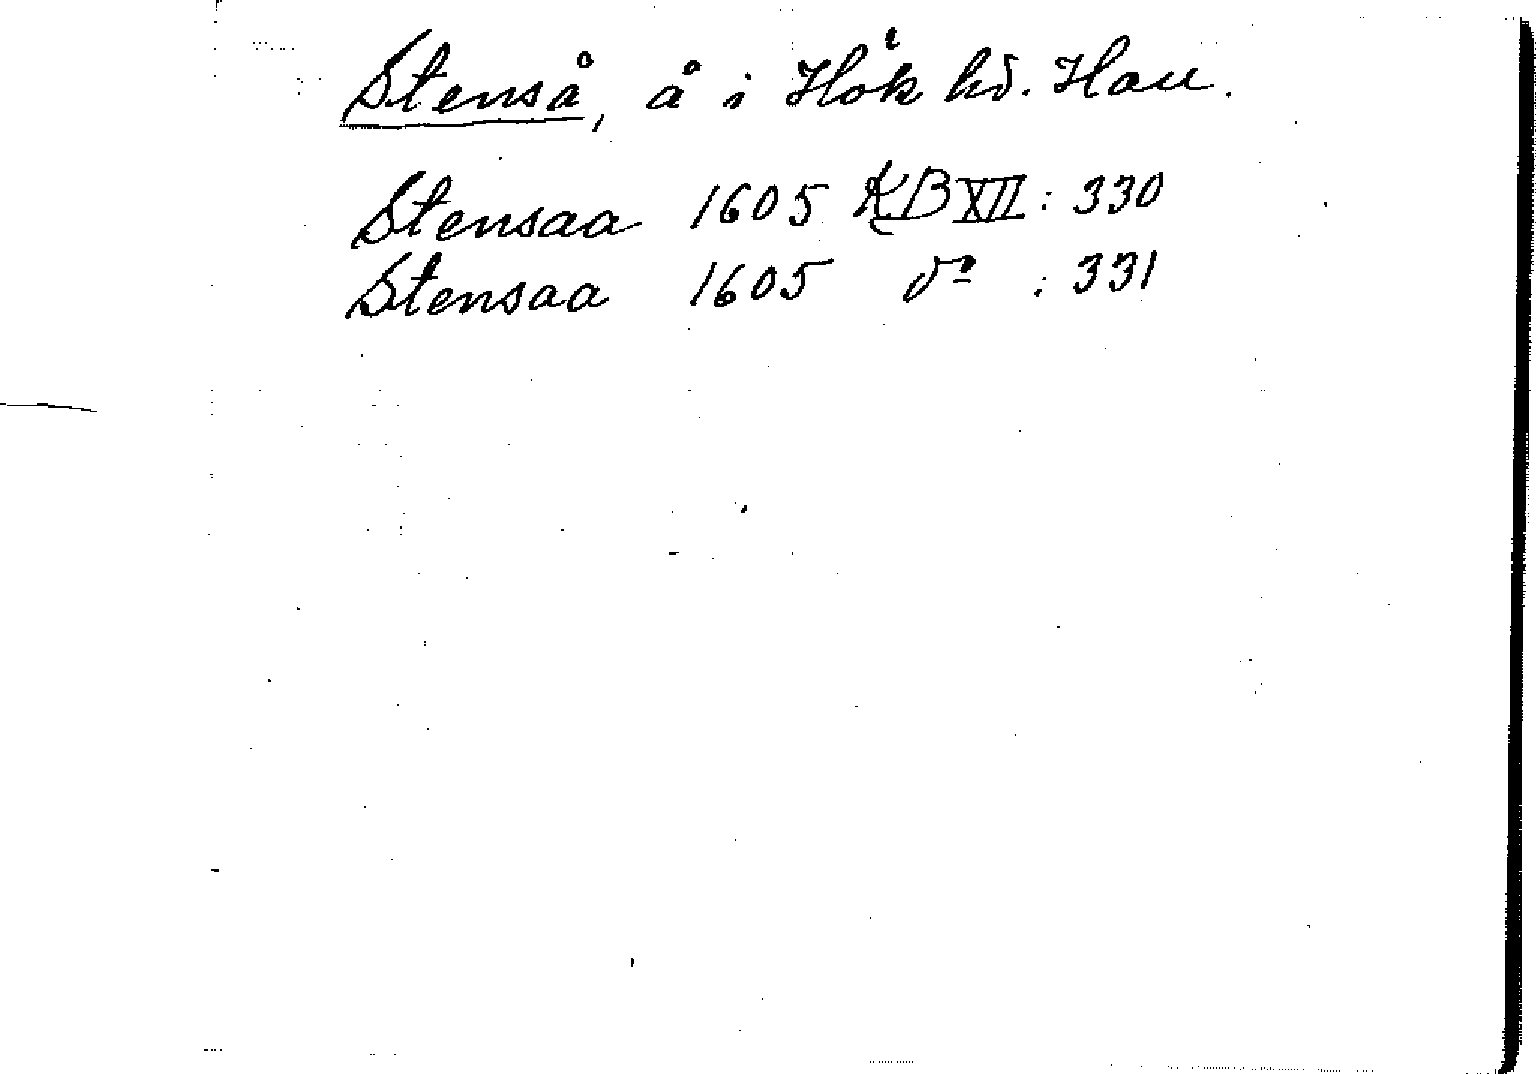 Stenså, å i Höks hd. Hall.
Stensaa 1605 KB XII: 330
Stensaa 1605 do : 331